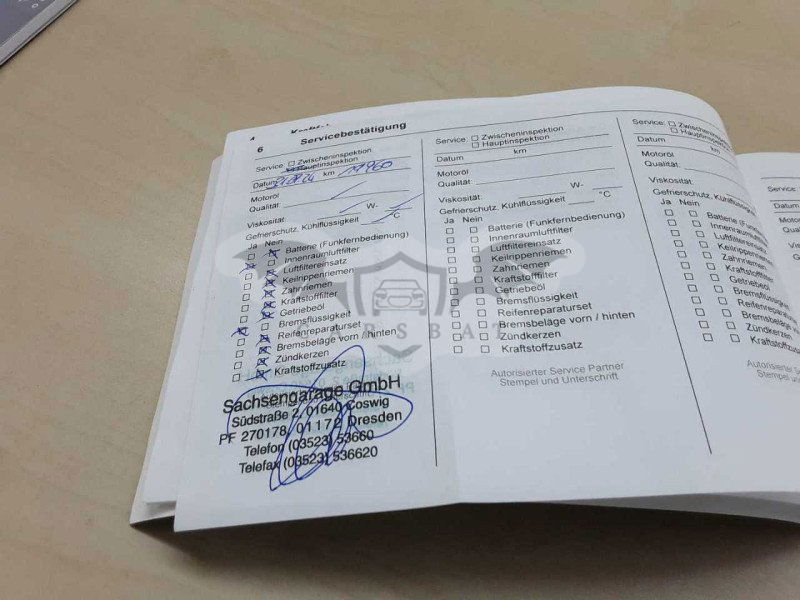 6 Servicebestätigung
Service: Zwischeninspektion
Hauptinspektion
Datum km 11960
Motoröl
Qualität:
Viskosität: W-
Gefrierschutz, Kühlflüssigkeit °C
Ja Nein
Batterie (Funkfernbedienung)
Innenraumluftfilter
Luftfiltereinsatz
Keilrippenriemen
Zahnriemen
Kraftstofffilter
Getriebeöl
Bremsflüssigkeit
Reifenreparaturset
Bremsbeläge vorn / hinten
Zündkerzen
Kraftstoffzusatz
Sachsengarage GmbH
Südstraße 2, 01640 Coswig
PF 270178, 01172 Dresden
Telefon (03523) 53660
Telefax (03523) 536620
Service: Zwischeninspektion
Hauptinspektion
Datum km
Motoröl
Qualität:
Viskosität: W-
Gefrierschutz, Kühlflüssigkeit °C
Ja Nein
Batterie (Funkfernbedienung)
Innenraumluftfilter
Luftfiltereinsatz
Keilrippenriemen
Zahnriemen
Kraftstofffilter
Getriebeöl
Bremsflüssigkeit
Reifenreparaturset
Bremsbeläge vorn / hinten
Zündkerzen
Kraftstoffzusatz
Autorisierter Service Partner
Stempel und Unterschrift
Service: Zwischeninspektion
Hauptinspektion
Datum km
Motoröl
Qualität:
Viskosität:
Gefrierschutz, Kühlflüssigkeit
Ja Nein
Batterie (Funkfernbedienung)
Innenraumluftfilter
Luftfiltereinsatz
Keilrippenriemen
Zahnriemen
Kraftstofffilter
Getriebeöl
Bremsflüssigkeit
Reifenreparaturset
Bremsbeläge vorn
Zündkerzen
Kraftstoffzusatz
Autorisierter Service
Stempel und
Service:
Datum
Motoröl
Qualität:
Viskosität:
Ja Nein